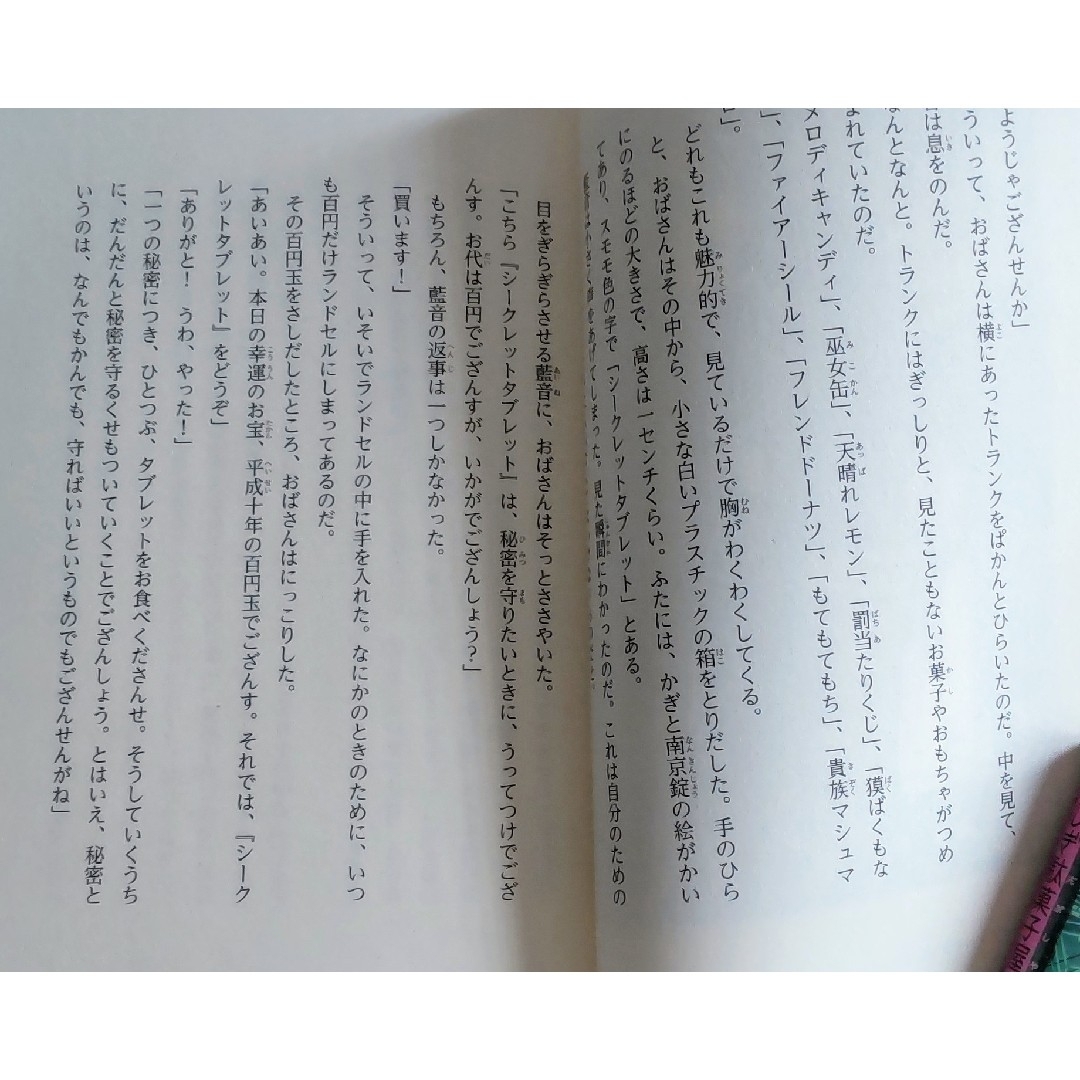 ようじゃござんせんか」
ういって、おばさんは横にあったトランクをぱかんとひらいたのだ。中を見て、
は息をのんだ。
なんとなんと。トランクにはぎっしりと、見たこともないお菓子やおもちゃがつめ
まれていたのだ。
メロディキャンディ」、「巫女缶」、「天晴れレモン」、「罰当たりくじ」、「獏ばくもな
」、「ファイアーシール」、「フレンドドーナツ」、「もてもてもち」、「貴族マシュマ
」。
どれもこれも魅力的で、見ているだけで胸がわくわくしてくる。
と、おばさんはその中から、小さな白いプラスチックの箱をとりだした。手のひら
にのるほどの大きさで、高さは一センチくらい。ふたには、かぎと南京錠の絵がかい
てあり、スモモ色の字で「シークレットタブレット」とある。
をあげてしまった。見た瞬間にわかったのだ。これは自分のための
目をぎらぎらさせる藍音に、おばさんはそっとささやいた。
「こちら『シークレットタブレット』は、秘密を守りたいときに、うってつけでござ
んす。お代は百円でござんすが、いかがでござんしょう？」
もちろん、藍音の返事は一つしかなかった。
「買います！」
そういって、いそいでランドセルの中に手を入れた。なにかのときのために、いつ
も百円だけランドセルにしまってあるのだ。
その百円玉をさしだしたところ、おばさんはにっこりした。
「あいあい。本日の幸運のお宝、平成十年の百円玉でござんす。それでは、『シーク
レットタブレット』をどうぞ」
「ありがと！　うわ、やった！」
「一つの秘密につき、ひとつぶ、タブレットをお食べくださんせ。そうしていくうち
に、だんだんと秘密を守るくせもついていくことでござんしょう。とはいえ、秘密と
いうのは、なんでもかんでも、守ればいいというものでもござんせんがね」
駄菓子屋